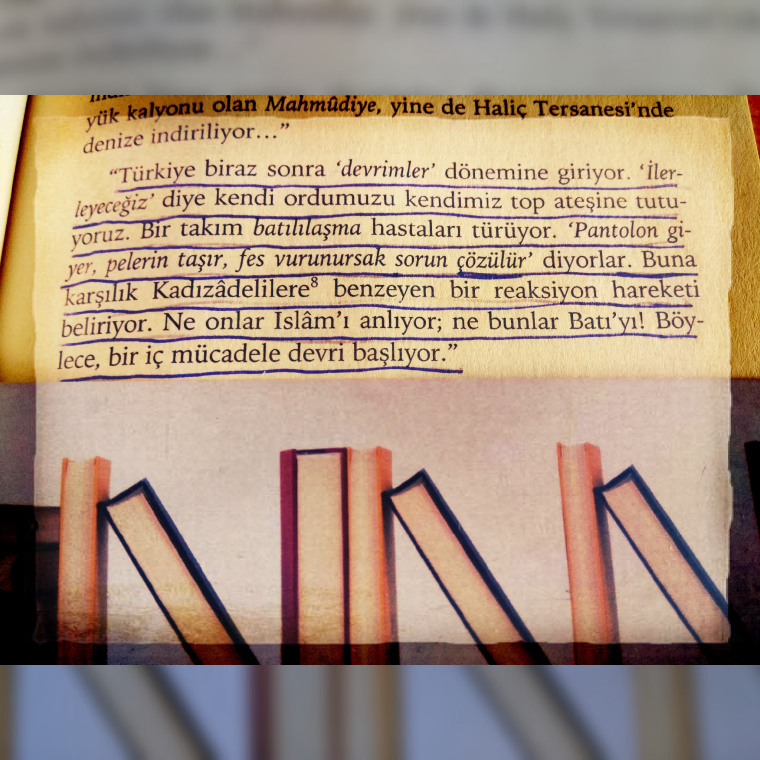 yük kalyonu olan Mahmûdiye, yine de Haliç Tersanesi'nde
denize indiriliyor..."
"Türkiye biraz sonra 'devrimler' dönemine giriyor. 'İler-
leyeceğiz' diye kendi ordumuzu kendimiz top ateşine tutu-
yoruz. Bir takım batılılaşma hastaları türüyor. 'Pantolon gi-
yer, pelerin taşır, fes vurunursak sorun çözülür' diyorlar. Buna
karşılık Kadızâdelilere⁸ benzeyen bir reaksiyon hareketi
beliriyor. Ne onlar Islâm'ı anlıyor; ne bunlar Batı'yı! Böy-
lece, bir iç mücadele devri başlıyor."